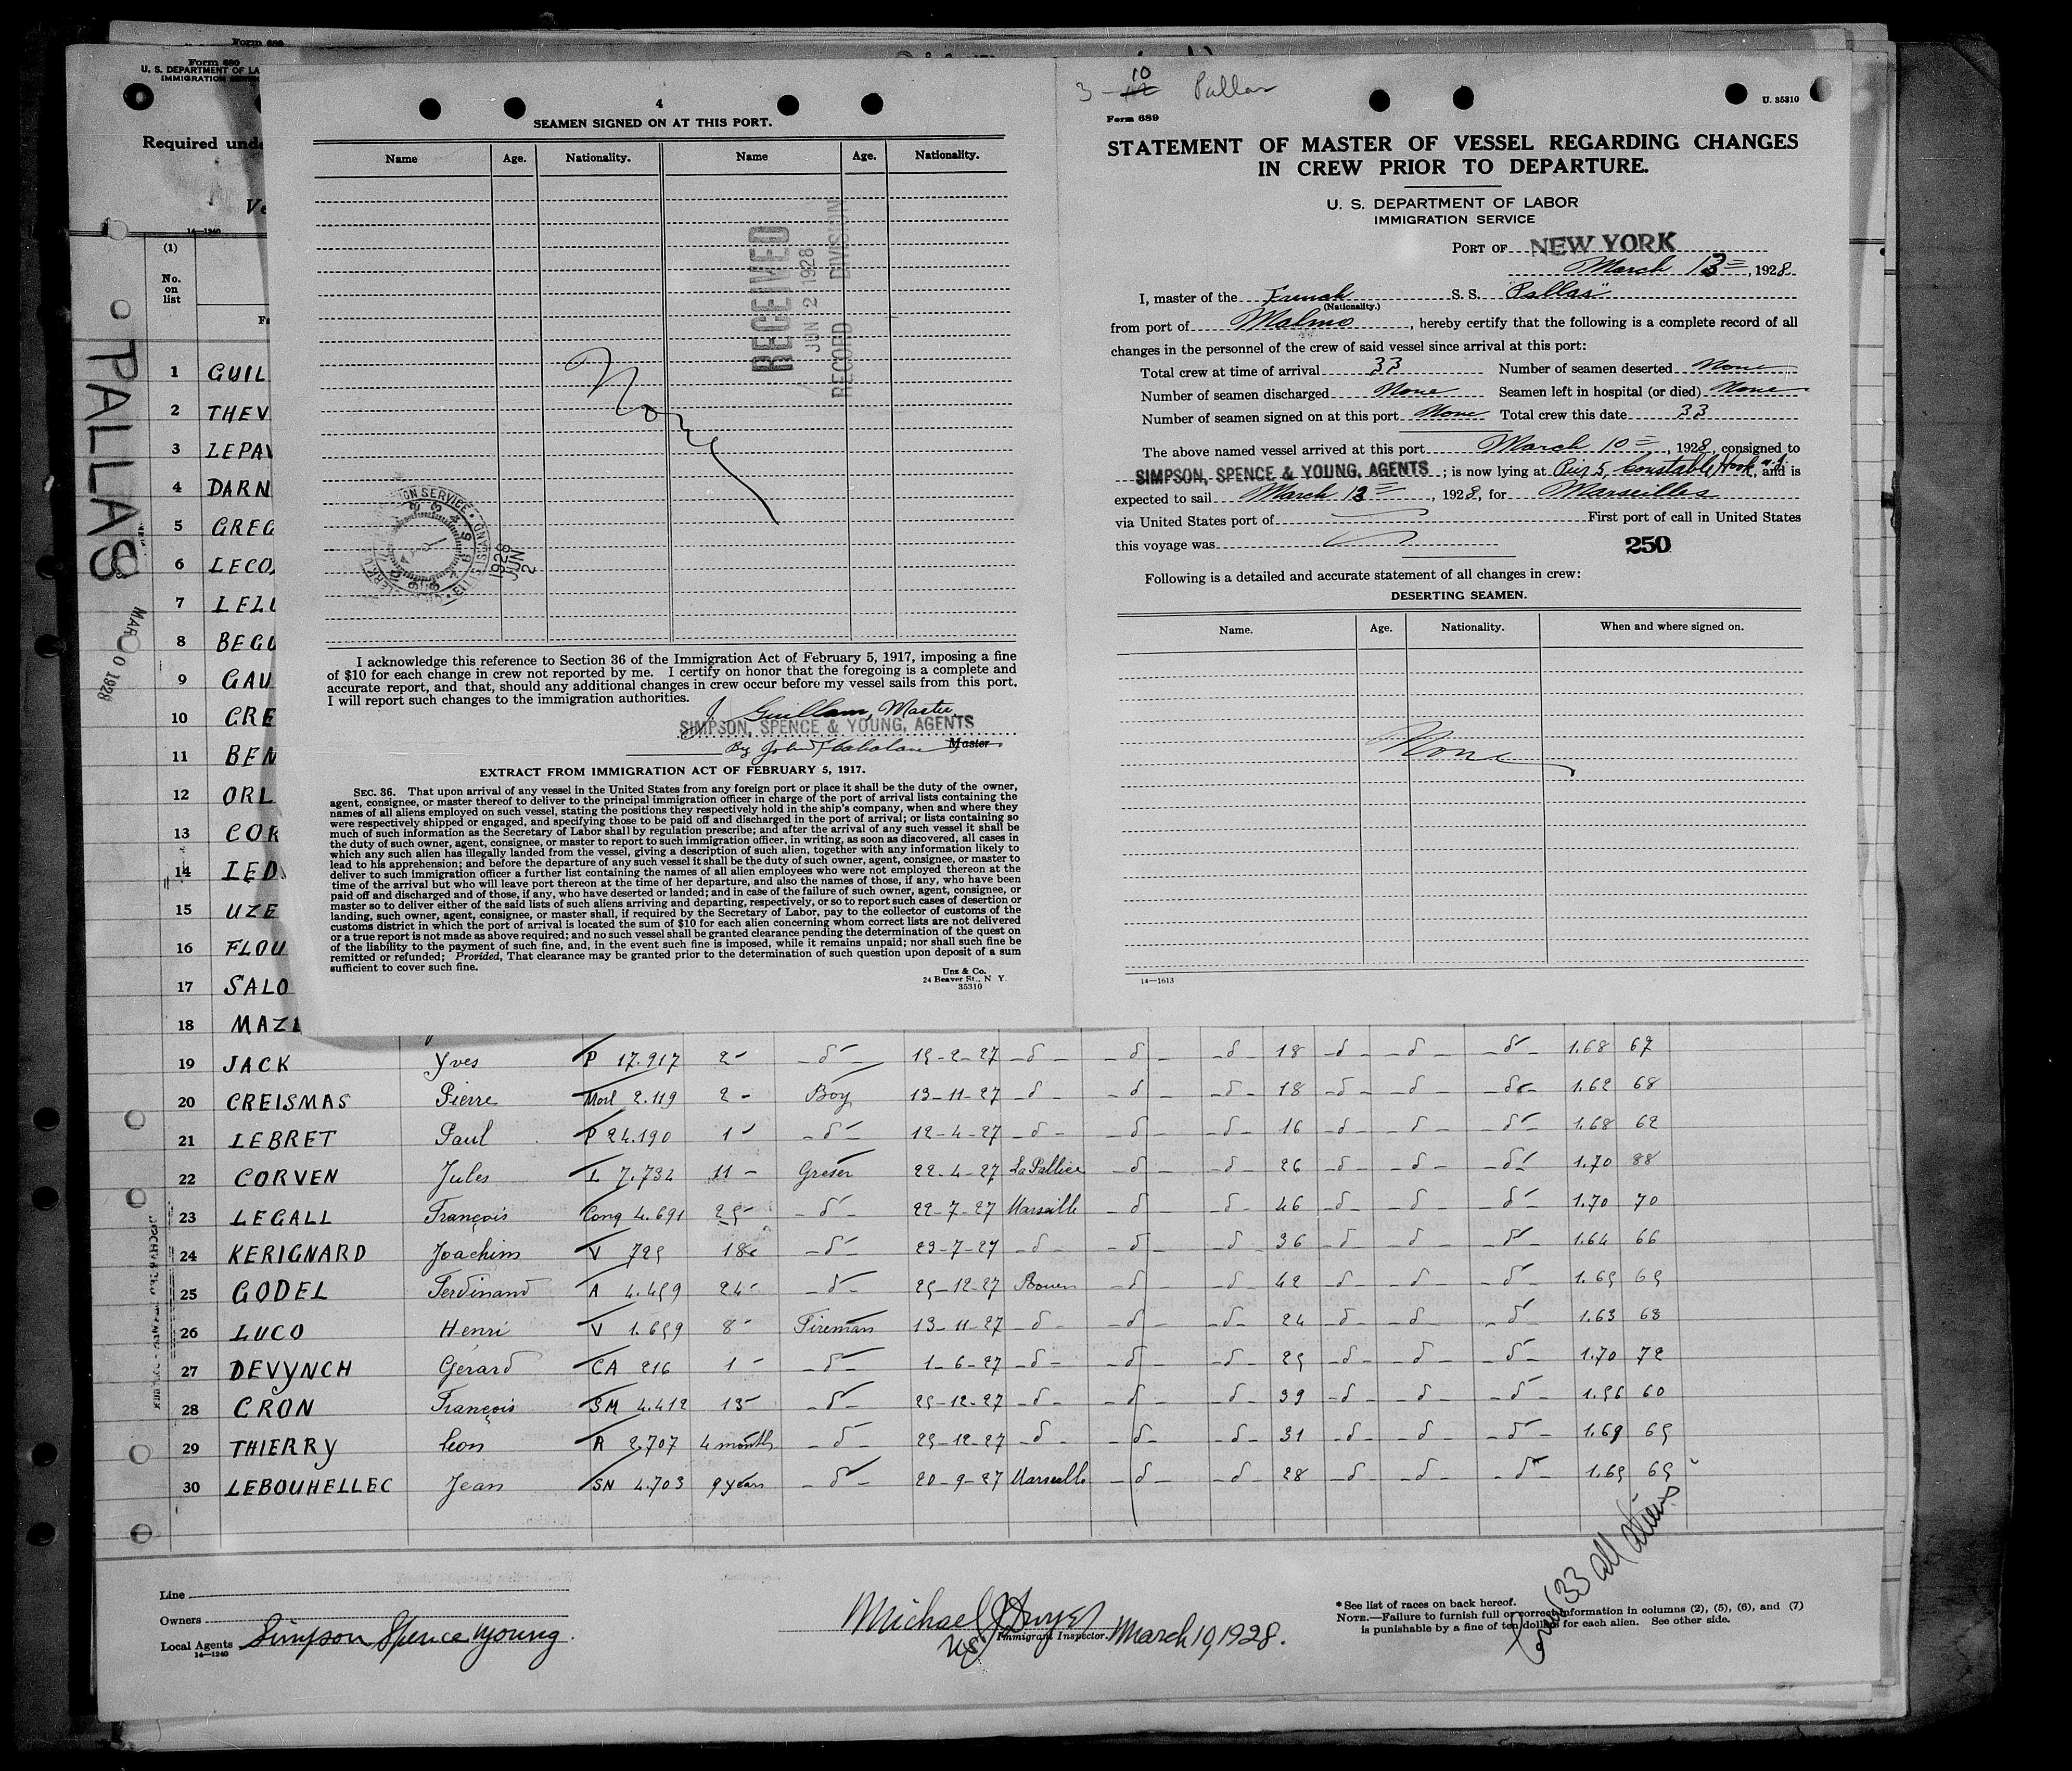 Form 680
Form 680
U. S. DEPARTMENT OF LA
IMMIGRATION SERVICE
Required unde
Ve
14—1240
(1)
No.
on
list
Fa
PALLAS
MAR 10 1928
1 GUIL
2 THEV
3 LEPAV
4 DARN
5 GREG
6 LECO
7 LELU
8 BEGU
9 GAU
10 CRE
11 BEN
12 ORL
13 COR
14 LED
15 UZE
16 FLOU
17 SALO
18 MAZE
4
SEAMEN SIGNED ON AT THIS PORT.
Name Age. Nationality. Name Age. Nationality.
None
RECEIVED
JUN 2 1928
RECORD DIVISION
1928
JUN
2
I acknowledge this reference to Section 36 of the Immigration Act of February 5, 1917, imposing a fine
of $10 for each change in crew not reported by me. I certify on honor that the foregoing is a complete and
accurate report, and that, should any additional changes in crew occur before my vessel sails from this port,
I will report such changes to the immigration authorities.
J. Guillam, Master
SIMPSON, SPENCE & YOUNG, AGENTS
By John Master
EXTRACT FROM IMMIGRATION ACT OF FEBRUARY 5, 1917.
SEC. 36. That upon arrival of any vessel in the United States from any foreign port or place it shall be the duty of the owner,
agent, consignee, or master thereof to deliver to the principal immigration officer in charge of the port of arrival lists containing the
names of all aliens employed on such vessel, stating the positions they respectively hold in the ship's company, when and where they
were respectively shipped or engaged, and specifying those to be paid off and discharged in the port of arrival; or lists containing so
much of such information as the Secretary of Labor shall by regulation prescribe; and after the arrival of any such vessel it shall be
the duty of such owner, agent, consignee, or master to report to such immigration officer, in writing, as soon as discovered, all cases in
which any such alien has illegally landed from the vessel, giving a description of such alien, together with any information likely to
lead to his apprehension; and before the departure of any such vessel it shall be the duty of such owner, agent, consignee, or master to
deliver to such immigration officer a further list containing the names of all alien employees who were not employed thereon at the
time of the arrival but who will leave port thereon at the time of her departure, and also the names of those, if any, who have been
paid off and discharged and of those, if any, who have deserted or landed; and in case of the failure of such owner, agent, consignee, or
master so to deliver either of the said lists of such aliens arriving and departing, respectively, or so to report such cases of desertion or
landing, such owner, agent, consignee, or master shall, if required by the Secretary of Labor, pay to the collector of customs of the
customs district in which the port of arrival is located the sum of $10 for each alien concerning whom correct lists are not delivered
or a true report is not made as above required; and no such vessel shall be granted clearance pending the determination of the quest on
of the liability to the payment of such fine, and, in the event such fine is imposed, while it remains unpaid; nor shall such fine be
remitted or refunded; Provided, That clearance may be granted prior to the determination of such question upon deposit of a sum
sufficient to cover such fine.
Unz & Co.
24 Beaver St., N Y.
35310
3 - 10 Pallas
U. 35310
Form 689
STATEMENT OF MASTER OF VESSEL REGARDING CHANGES
IN CREW PRIOR TO DEPARTURE.
U. S. DEPARTMENT OF LABOR
IMMIGRATION SERVICE
PORT OF NEW YORK
March 13, 1928
I, master of the French S. S. "Pallas"
(Nationality.)
from port of Malmo, hereby certify that the following is a complete record of all
changes in the personnel of the crew of said vessel since arrival at this port:
Total crew at time of arrival 33 Number of seamen deserted None
Number of seamen discharged None Seamen left in hospital (or died) None
Number of seamen signed on at this port None Total crew this date 33
The above named vessel arrived at this port March 10, 1928, consigned to
SIMPSON, SPENCE & YOUNG, AGENTS; is now lying at Pier 5, Constable Hook N.J., and is
expected to sail March 13, 1928, for Marseilles
via United States port of First port of call in United States
this voyage was
250
Following is a detailed and accurate statement of all changes in crew:
DESERTING SEAMEN.
Name. Age. Nationality. When and where signed on.
None
14—1613
19 JACK Yves P 17.917 2 - d - 15-2-27 - d - - d - - d - 18 - d - - d - - d - 1.68 67
20 CREISMAS Pierre Morl 2.119 2 - Boy 13-11-27 - d - - d - - d - 18 - d - - d - - d - 1.62 68
21 LEBRET Paul P 24.190 1 - d - 12-4-27 - d - - d - - d - 16 - d - - d - - d - 1.68 62
22 CORVEN Jules L 7.734 11 - Greser 22-4-27 La Pallice - d - - d - 26 - d - - d - - d - 1.70 88
23 LEGALL François Conq 4.691 25 - d - 22-7-27 Marseille - d - - d - 46 - d - - d - - d - 1.70 70
24 KERIGNARD Joachim V 725 18 - d - 23-7-27 - d - - d - - d - 36 - d - - d - - d - 1.64 66
25 GODEL Ferdinand A 4.459 24 - d - 25-12-27 Rouen - d - - d - 42 - d - - d - - d - 1.65 65
26 LUCO Henri V 1.659 8 - Fireman 13-11-27 - d - - d - - d - 24 - d - - d - - d - 1.63 68
27 DEVYNCH Gérard CA 216 1 - - d - 1-6-27 - d - - d - - d - 25 - d - - d - - d - 1.70 72
28 CRON François SM 4.412 13 - d - 25-12-27 - d - - d - - d - 39 - d - - d - - d - 1.56 60
29 THIERRY Leon R 2.707 4 month - d - 25-12-27 - d - - d - - d - 31 - d - - d - - d - 1.69 65
30 LEBOUHELLEC Jean SN 4.703 9 years - d - 20-9-27 Marseille - d - - d - 28 - d - - d - - d - 1.65 65
Line
Owners
Local Agents Simpson Spence Young.
14—1240
Michael J Dwyer
Immigrant Inspector. March 10, 1928.
* See list of races on back hereof.
NOTE.—Failure to furnish full or correct information in columns (2), (5), (6), and (7)
is punishable by a fine of ten dollars for each alien. See other side.
Crew 33 all aliens